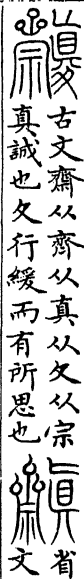 古文齋从齊从真从夂从宗
真誠也夂行緩而有所思也
省
文